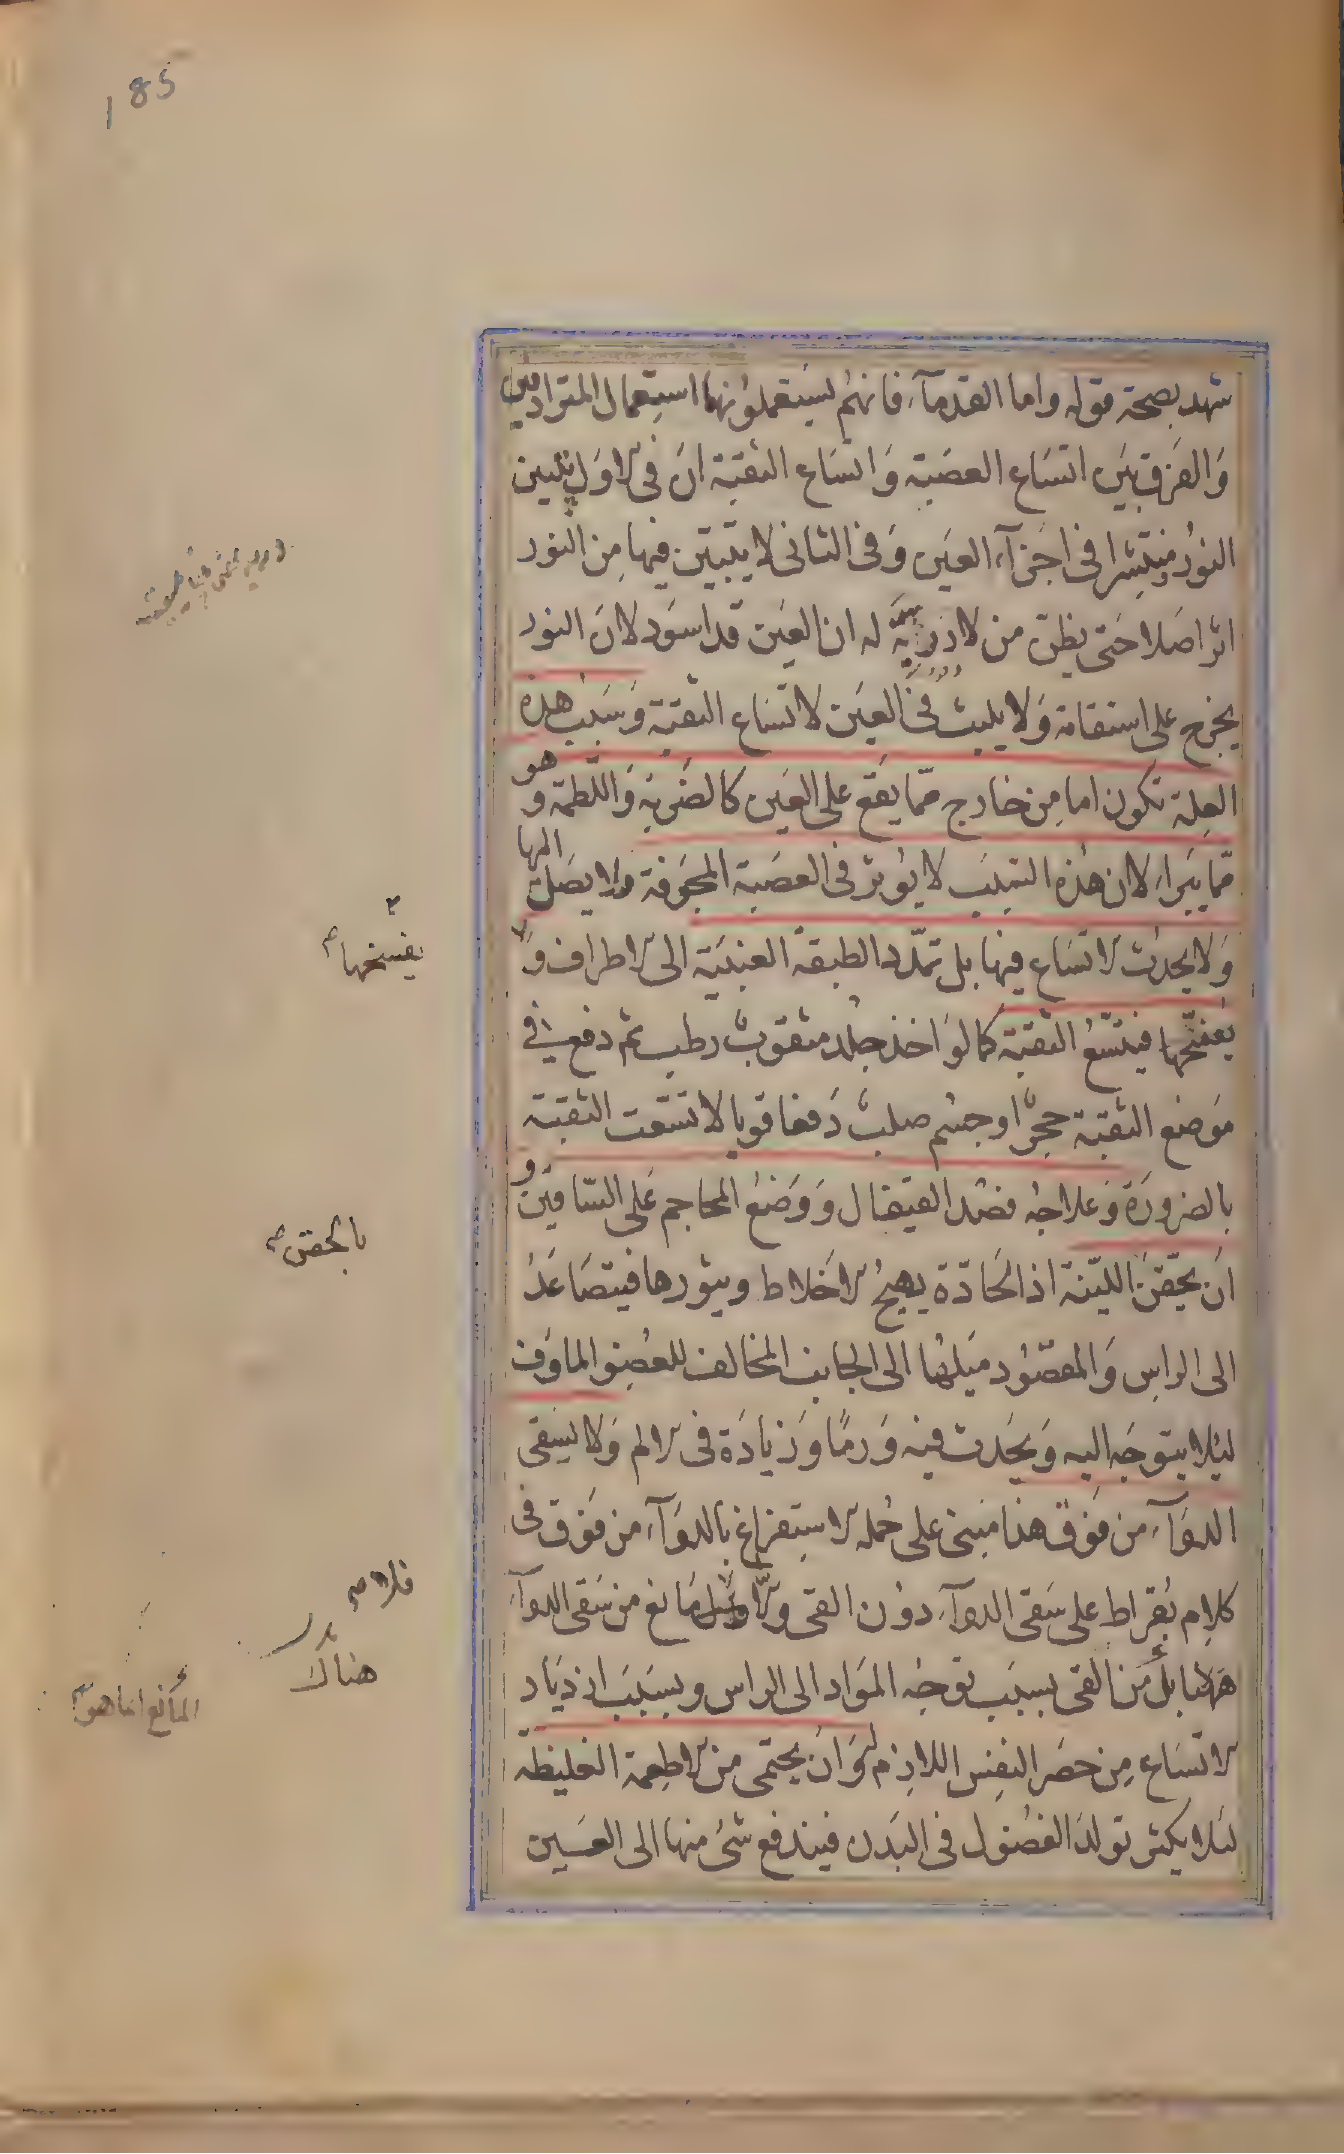 185
شهد بصحة قوله واما القدمآء فانهم يستعملونهما استعمال المترادفين
وَالفرق بَين اتسَاع العصَبة وَاتسَاع الثقبة انَ فى الاوَل يتبين
النوُر منتشرا فى اجزآء العين وَفى الثانى لا يتبيّن فيها مِن النور
اثر اصَلا حَتى يظن من لا دربة له ان العَين قد اسوَد لانَ النور
يخرج على استقامة وَلا يلبث فى العَين لاتسَاع الثقبة وَسَبب هذه
العلة تكون اما مِن خارج ممّا يقع على العَين كالضربة وَاللّطمة وهو
ممّا يبَراء لان هذه السَبب لا يؤثر فى العصَبة المجوفة ولا يصَل اليها
وَلا يحدث الاتسَاع فيها بل تمدّد الطبقة العنبَية الى الاطراف وَلا
يفسّخها فيتسّعُ الثقبة كما لوَ اخذ جلد مثقوب رطب ثم دفع فى
موَضع الثقبة حجرٌ او جسم صلب دَفعا قويا لاتسَعت الثقبة
بالضرورَة وَعلاجه فصد القيفال وَوَضع المحاجم عَلى السّاقين و
انَ يحقن الليّنة اذ الحَادّة يهيج الاخلاط ويثورها فيتصَاعَد
الى الراسِ وَالمقصُود ميَلهُا الى الجانب المخالف للعضو الماوُف
ليئلا يتوجَه اليه وَيحَدث فيه وَرمًا وَزيادَة فى الالم وَلا يسقى
الدوَآء من فوَق هذا مبنى على حمله الاستفراغ بالدوَآء من فوَق فى
كلام بقراط على سَقى الدوآء دوُن القى والا مَانع من سَقى الدوآء
ههنا بل من القى بسبَب توجه الموَاد الى الراس وبسَبَب ازديَاد
الاتسَاع مِن حصَر النفس اللازم لهُ وَان يحتمى من الاطعمة الغليظة
لئلا يكثر توَلد الفضوُل فى البَدن فيندفع شئ منها الى العَين
يفسخها
بالحقن
فلا
هناك
المانع انما هو